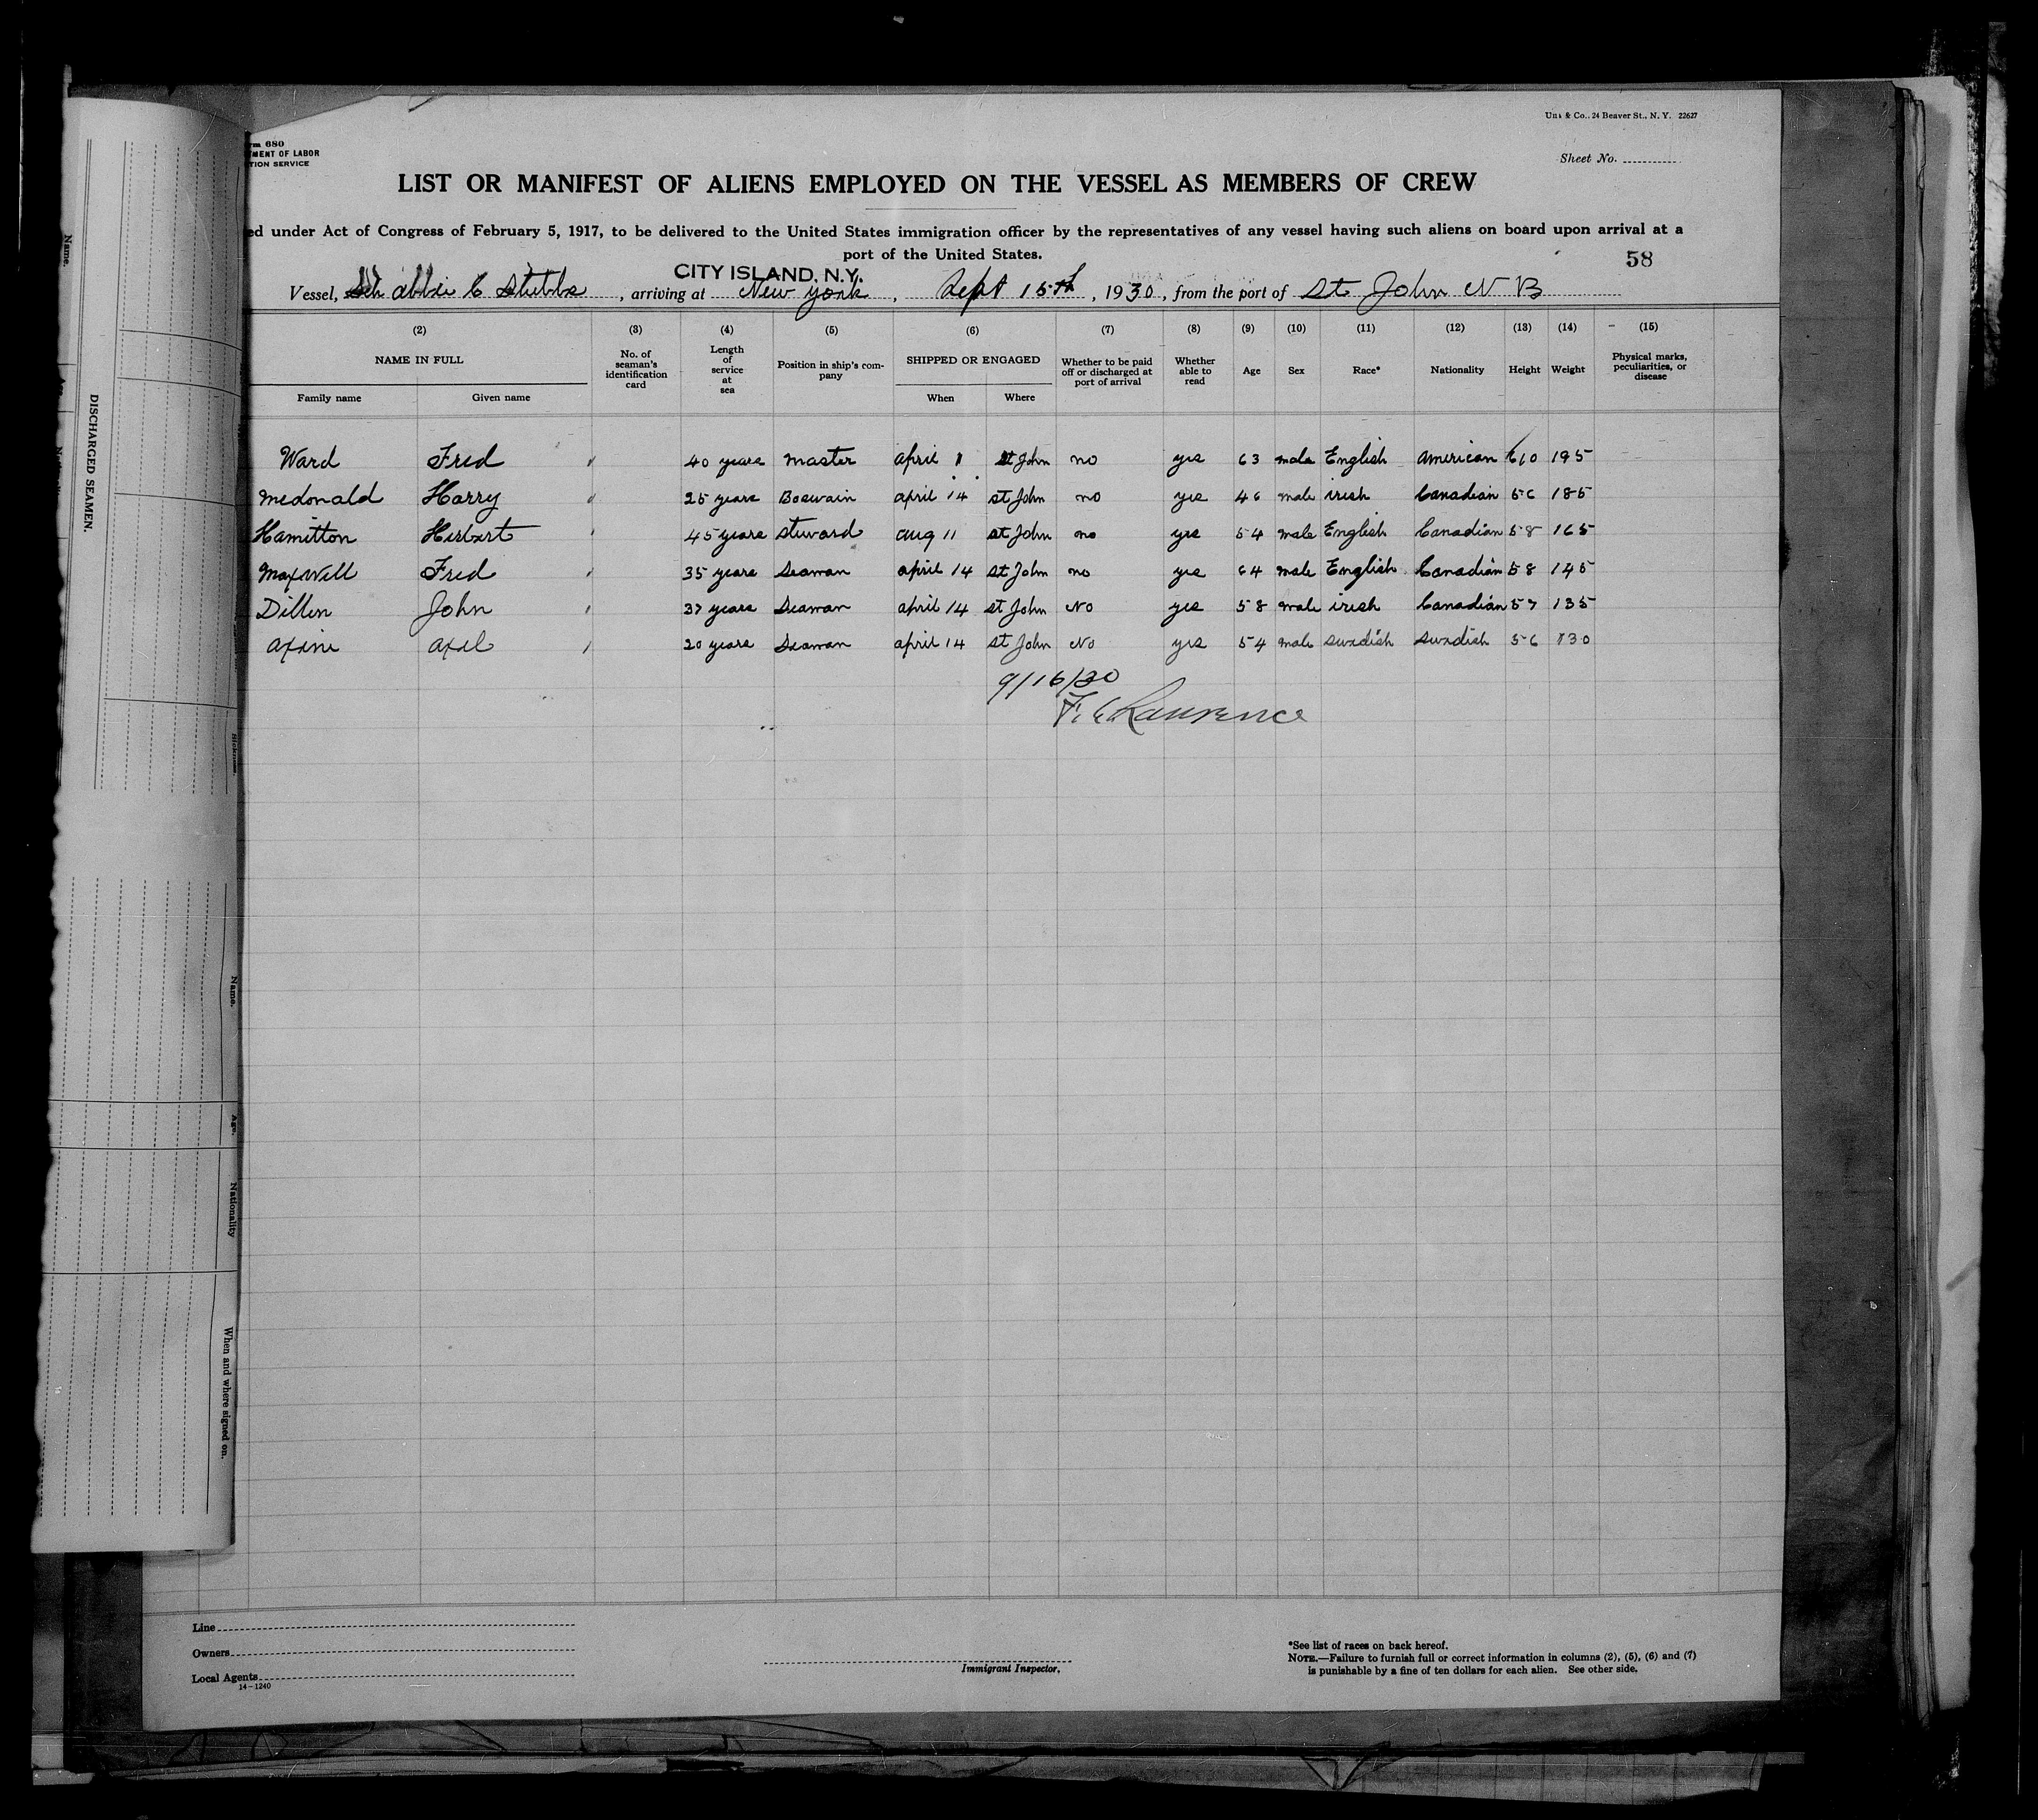 Un & Co., 24 Beaver St., N. Y. 22627
rm 680
MENT OF LABOR
TION SERVICE
Sheet No.
LIST OR MANIFEST OF ALIENS EMPLOYED ON THE VESSEL AS MEMBERS OF CREW
ed under Act of Congress of February 5, 1917, to be delivered to the United States immigration officer by the representatives of any vessel having such aliens on board upon arrival at a
port of the United States.
58
CITY ISLAND, N.Y.
Vessel, Sch abbie C Stubbs, arriving at New york, Sept 15th, 1930, from the port of St John N B
(2) (3) (4) (5) (6) (7) (8) (9) (10) (11) (12) (13) (14) (15)
NAME IN FULL No. of seaman's identification card Length of service at sea Position in ship's company SHIPPED OR ENGAGED Whether to be paid off or discharged at port of arrival Whether able to read Age Sex Race* Nationality Height Weight Physical marks, peculiarities, or disease
Family name Given name When Where
Ward Fred 40 years master april 1 st John no yes 63 male English american 610 195
mcdonald Harry 25 years Boswain april 14 st John no yes 46 male irish Canadian 56 185
Hamitton Herbert 45 years steward aug 11 st John no yes 54 male English Canadian 58 165
maxwell Fred 35 years Seaman april 14 st John no yes 64 male English Canadian 58 145
Dillen John 37 years Seaman april 14 st John No yes 58 male irish Canadian 57 135
axine axel 20 years Seaman april 14 st John No yes 54 male swedish swedish 56 130
9/16/30
F. C. Lawrence
Line
Owners
Local Agents
14-1240
Immigrant Inspector.
*See list of races on back hereof.
NOTE.—Failure to furnish full or correct information in columns (2), (5), (6) and (7)
is punishable by a fine of ten dollars for each alien. See other side.
DISCHARGED SEAMEN.
Name.
Name.
Age.
Nationality
When and where signed on.